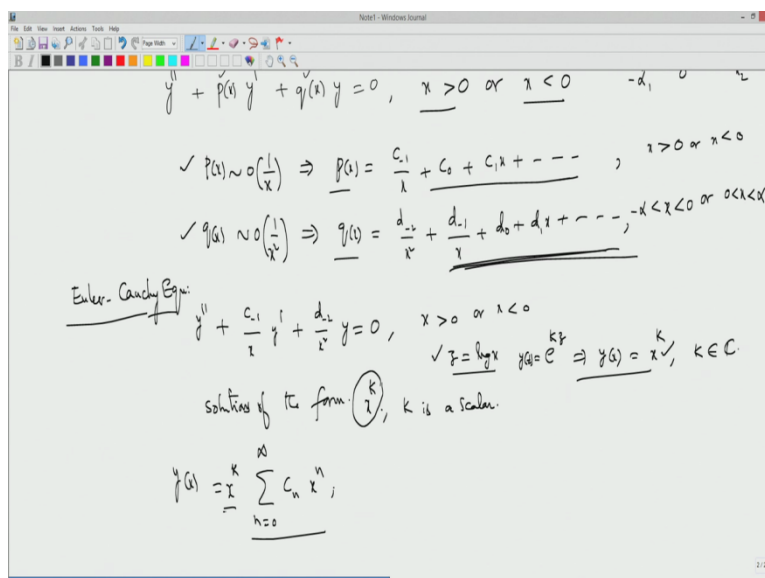 Note1 - Windows Journal
File Edit View Insert Actions Tools Help
Page Width
B I
y'' + p(x) y' + q(x) y = 0, x > 0 or x < 0 -α₁ 0 α₂
✓ p(x) ~ O(1/x) ⇒ p(x) = c₋₁/x + c₀ + c₁x + - - - , x > 0 or x < 0
✓ q(x) ~ O(1/x²) ⇒ q(x) = d₋₂/x² + d₋₁/x + d₀ + d₁x + - - - , -α < x < 0 or 0 < x < α
Euler-Cauchy Equn:
y'' + c₋₁/x y' + d₋₂/x² y = 0, x > 0 or x < 0
✓ z = log x y(x) = e^{kz} ⇒ y(x) = x^k ✓, k ∈ ℂ.
solutions of the form x^k, k is a scalar.
y(x) = x^k ∑_{n=0}^{∞} cₙ xⁿ ;